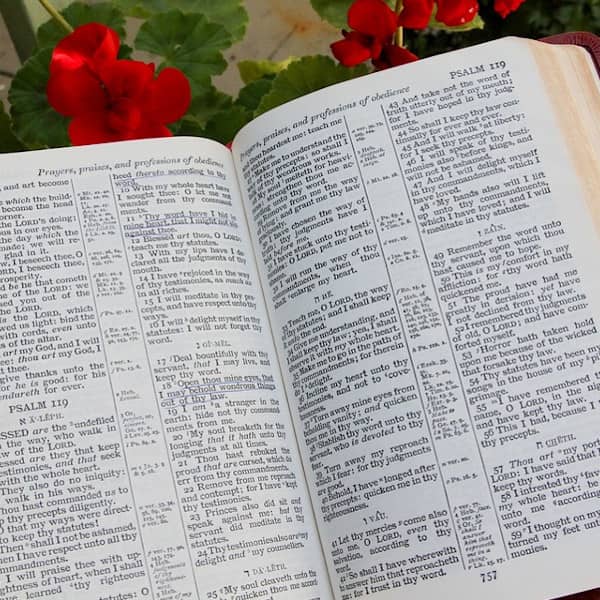 Prayers, praises, and professions of obedience
and art become
which the build
become the head
corner.
the LORD's doing;
in our eyes.
the day which the
made; we will re-
glad in it.
I beseech thee, O
I beseech thee,
prosperity.
be he that cometh
of the LORD: we
sed you out of the
LORD.
the LORD, which
wed us light: bind the
with cords, even unto
of the altar.
art my God, and I
ee: thou art my God,
thee.
give thanks unto the
for he is good: for his
endureth for ever.
PSALM 119
א ĀʹLĔPH.
ESSED are the undefiled
the way, who walk in
of the LORD.
Blessed are they that keep
testimonies, and that seek
with the whole heart.
They also do no iniquity:
walk in his ways.
Thou hast commanded us to
thy precepts diligently.
that my ways were direct-
keep thy statutes!
Then shall I not be ashamed,
I have respect unto all thy
mandments.
I will praise thee with up-
rightness of heart, when I shall
learned thy righteous
I will keep thy statutes: O
heed thereto according to thy
word.
10 With my whole heart have
I sought thee: O let me not
wander from thy command-
ments.
11 Thy word have I hid in
mine heart, that I might not sin
against thee.
12 Blessed art thou, O LORD:
teach me thy statutes.
13 With my lips have I de-
clared all the judgments of thy
mouth.
14 I have rejoiced in the way
of thy testimonies, as much as
in all riches.
15 I will meditate in thy pre-
cepts, and have respect unto thy
ways.
16 I will delight myself in thy
statutes: I will not forget thy
word.
ג GĪʹ-MĔL.
17 Deal bountifully with thy
servant, that I may live, and
keep thy word.
18 Open thou mine eyes, that
I may behold wondrous things
out of thy law.
19 I am a stranger in the
earth: hide not thy command-
ments from me.
20 My soul breaketh for the
longing that it hath unto thy
judgments at all times.
21 Thou hast rebuked the
proud that are cursed, which do
err from thy commandments.
22 Remove from me reproach
and contempt; for I have kept
thy testimonies.
23 Princes also did sit and
speak against me: but thy
servant did meditate in thy
statutes.
24 Thy testimonies also are my
delight and my counsellors.
ד DĀʹ-LĔTH.
25 My soul cleaveth unto the
Prayers, praises, and professions of obedience
PSALM 119
thou heardest me: teach me
thy statutes.
27 Make me to understand the
way of thy precepts: so shall I
talk of thy wondrous works.
28 My soul melteth for heavi-
ness: strengthen thou me ac-
cording unto thy word.
29 Remove from me the way
of lying: and grant me thy law
graciously.
30 I have chosen the way of
truth: thy judgments have I
laid before me.
31 I have stuck unto thy testi-
monies: O LORD, put me not to
shame.
32 I will run the way of thy
commandments, when thou
shalt enlarge my heart.
ה HĒ.
33 Teach me, O LORD, the way
of thy statutes; and I shall keep
it unto the end.
34 Give me understanding, and
I shall keep thy law; yea, I shall
observe it with my whole heart.
35 Make me to go in the path of
thy commandments; for therein
do I delight.
36 Incline my heart unto thy
testimonies, and not to cove-
tousness.
37 Turn away mine eyes from
beholding vanity; and quicken
thou me in thy way.
38 Stablish thy word unto thy
servant, who is devoted to thy
fear.
39 Turn away my reproach
which I fear: for thy judgments
are good.
40 Behold, I have longed after
thy precepts: quicken me in thy
righteousness.
ו VĀV.
41 Let thy mercies come also
unto me, O LORD, even thy
salvation, according to thy
word.
42 So shall I have wherewith
to answer him that reproacheth
me: for I trust in thy word.
43 And take not the word of
truth utterly out of my mouth;
for I have hoped in thy judg-
ments.
44 So shall I keep thy law con-
tinually for ever and ever.
45 And I will walk at liberty:
for I seek thy precepts.
46 I will speak of thy testi-
monies also before kings, and
will not be ashamed.
47 And I will delight myself
in thy commandments, which I
have loved.
48 My hands also will I lift
up unto thy commandments,
which I have loved; and I will
meditate in thy statutes.
ז ZĀʹIN.
49 Remember the word unto
thy servant, upon which thou
hast caused me to hope.
50 This is my comfort in my
affliction: for thy word hath
quickened me.
51 The proud have had me
greatly in derision: yet have I
not declined from thy law.
52 I remembered thy judgments
of old, O LORD; and have com-
forted myself.
53 Horror hath taken hold
upon me because of the wicked
that forsake thy law.
54 Thy statutes have been my
songs in the house of my pil-
grimage.
55 I have remembered thy
name, O LORD, in the night,
and have kept thy law.
56 This I had, because I kept
thy precepts.
ח CHĔTH.
57 Thou art my portion, O
LORD: I have said that I would
keep thy words.
58 I intreated thy favour with
my whole heart: be merciful
unto me according to thy
word.
59 I thought on my ways, and
turned my feet unto thy testi-
monies.
757